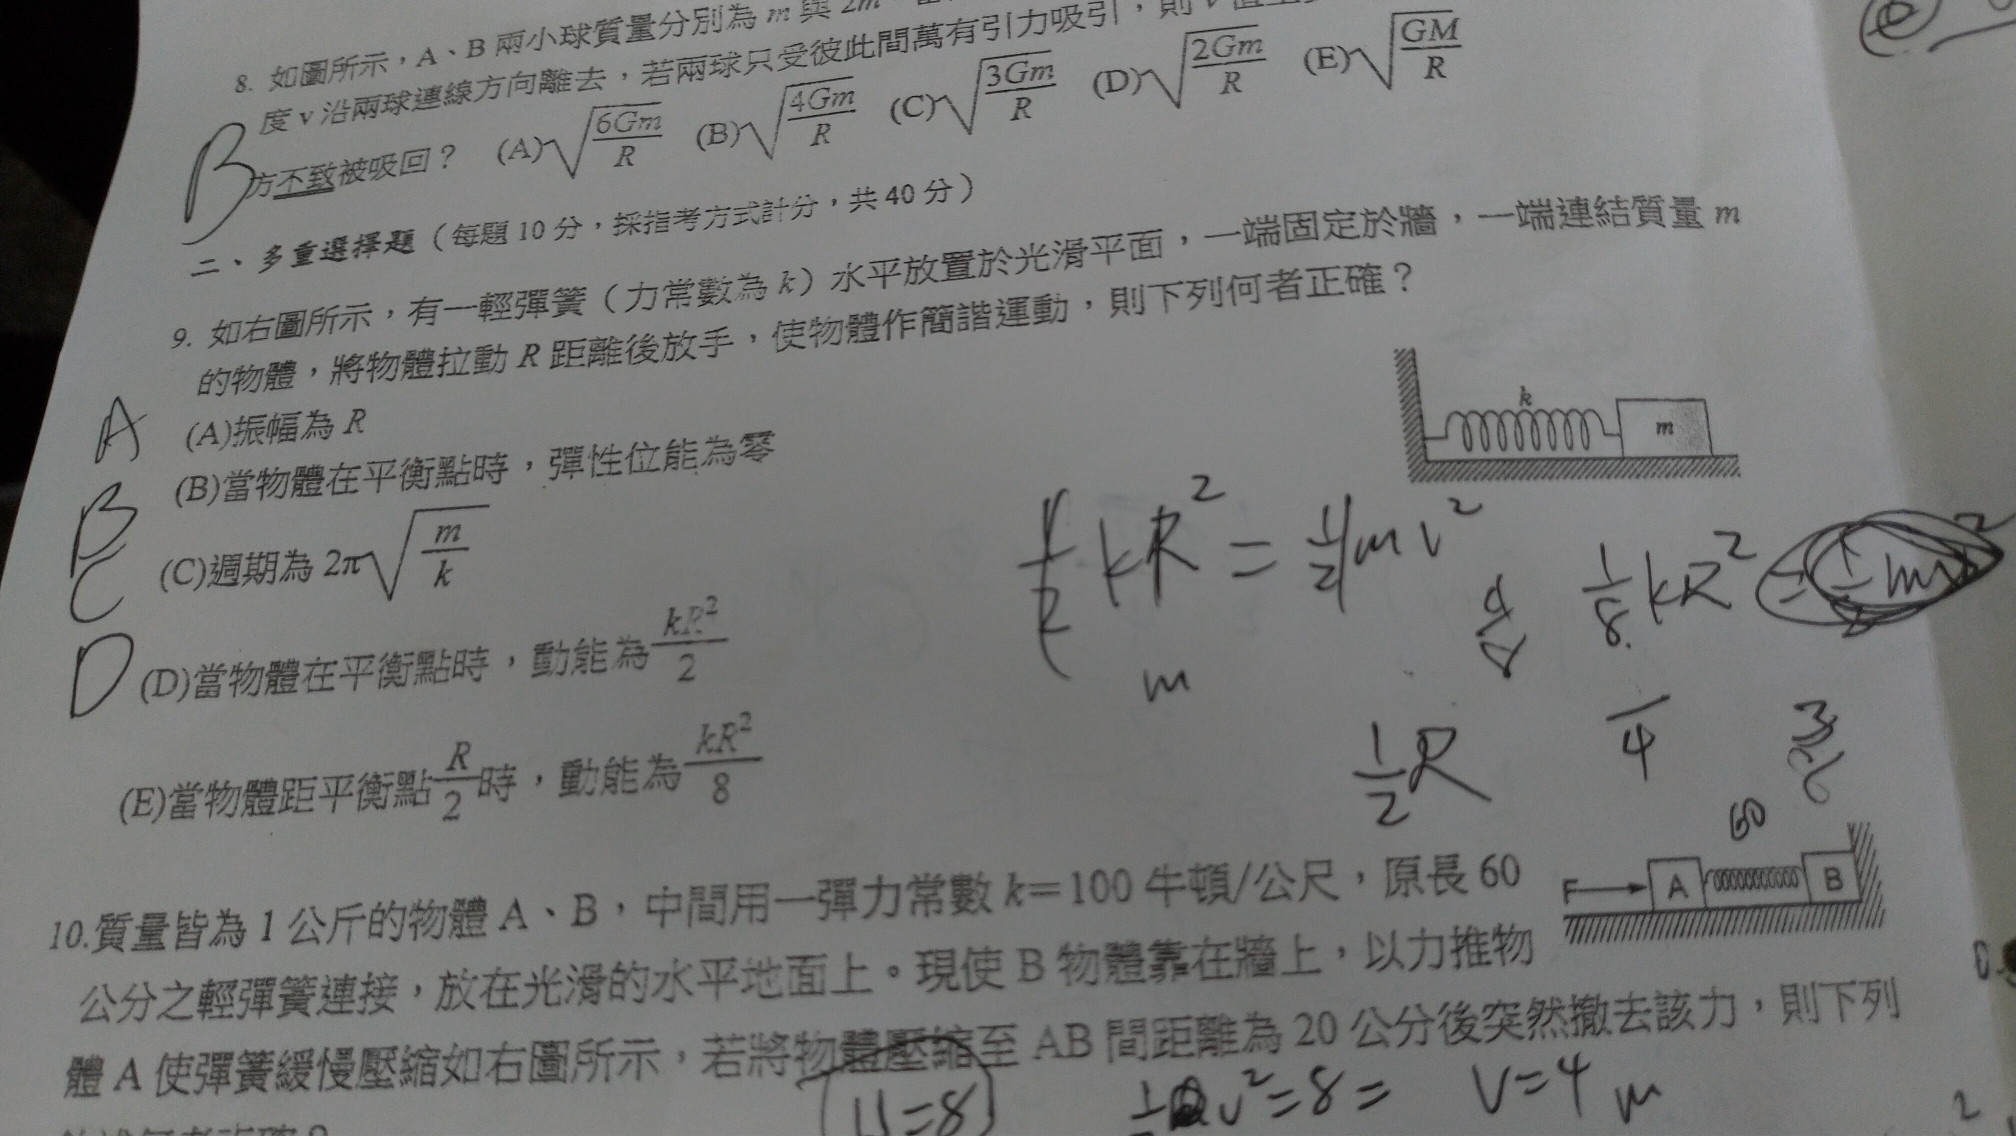 8. 如圖所示，A、B 兩小球質量分別為 m 與 2m
度 v 沿兩球連線方向離去，若兩球只受彼此間萬有引力吸引，則 v 值
方不致被吸回？ (A)√(6Gm/R) (B)√(4Gm/R) (C)√(3Gm/R) (D)√(2Gm/R) (E)√(GM/R)
B
二、多重選擇題（每題 10 分，採指考方式計分，共 40 分）
9. 如右圖所示，有一輕彈簧（力常數為 k）水平放置於光滑平面，一端固定於牆，一端連結質量 m
的物體，將物體拉動 R 距離後放手，使物體作簡諧運動，則下列何者正確？
A (A)振幅為 R
B (B)當物體在平衡點時，彈性位能為零
C (C)週期為 2π√(m/k)
D (D)當物體在平衡點時，動能為 kR²/2
(E)當物體距平衡點 R/2 時，動能為 kR²/8
k
m
1/2 kR² = 1/2 mv²
1/8 kR²
m
1/2 R
4
60
F A B
10.質量皆為 1 公斤的物體 A、B，中間用一彈力常數 k=100 牛頓/公尺，原長 60
公分之輕彈簧連接，放在光滑的水平地面上。現使 B 物體靠在牆上，以力推物
體 A 使彈簧緩慢壓縮如右圖所示，若將物體壓縮至 AB 間距離為 20 公分後突然撤去該力，則下列
U=8
v²=8= V=4 m
2